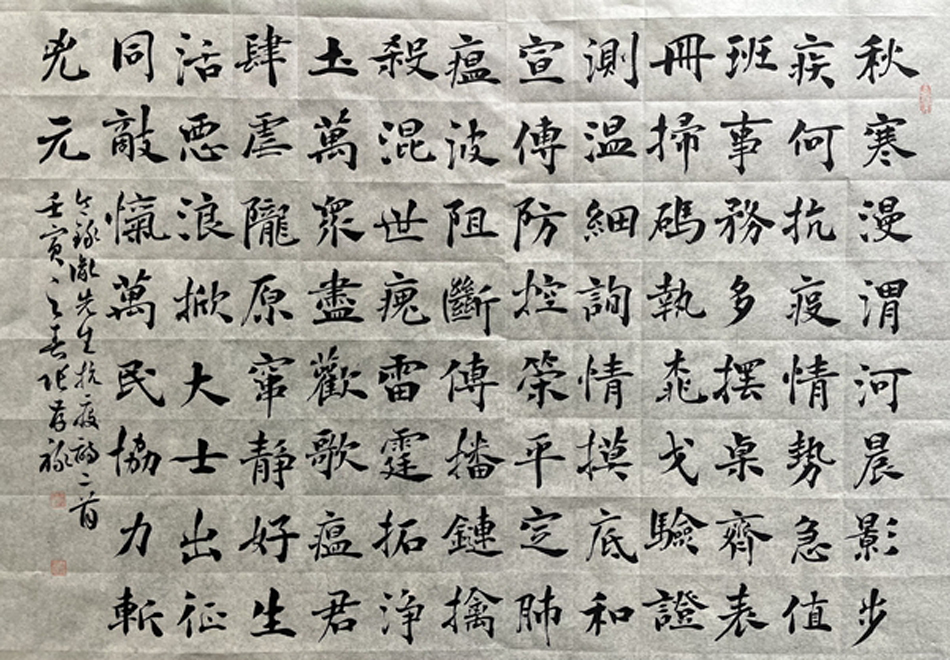 秋寒漫渭河晨影步
疾何抗疫情勢急值
班事務多擺桌齊表
冊掃碼執戈驗證
測温細詢情摸底和
宣傳防控策平定肺
瘟波阻斷傳播鏈擒
殺混世雷霆拓浄
土萬衆盡歡歌瘟君
肆虐隴原窜靜好生
活惡浪掀大士出征
同敵愾萬民協力斬
兇元
錄胤先生抗疫詩二首
壬寅之春張君禄